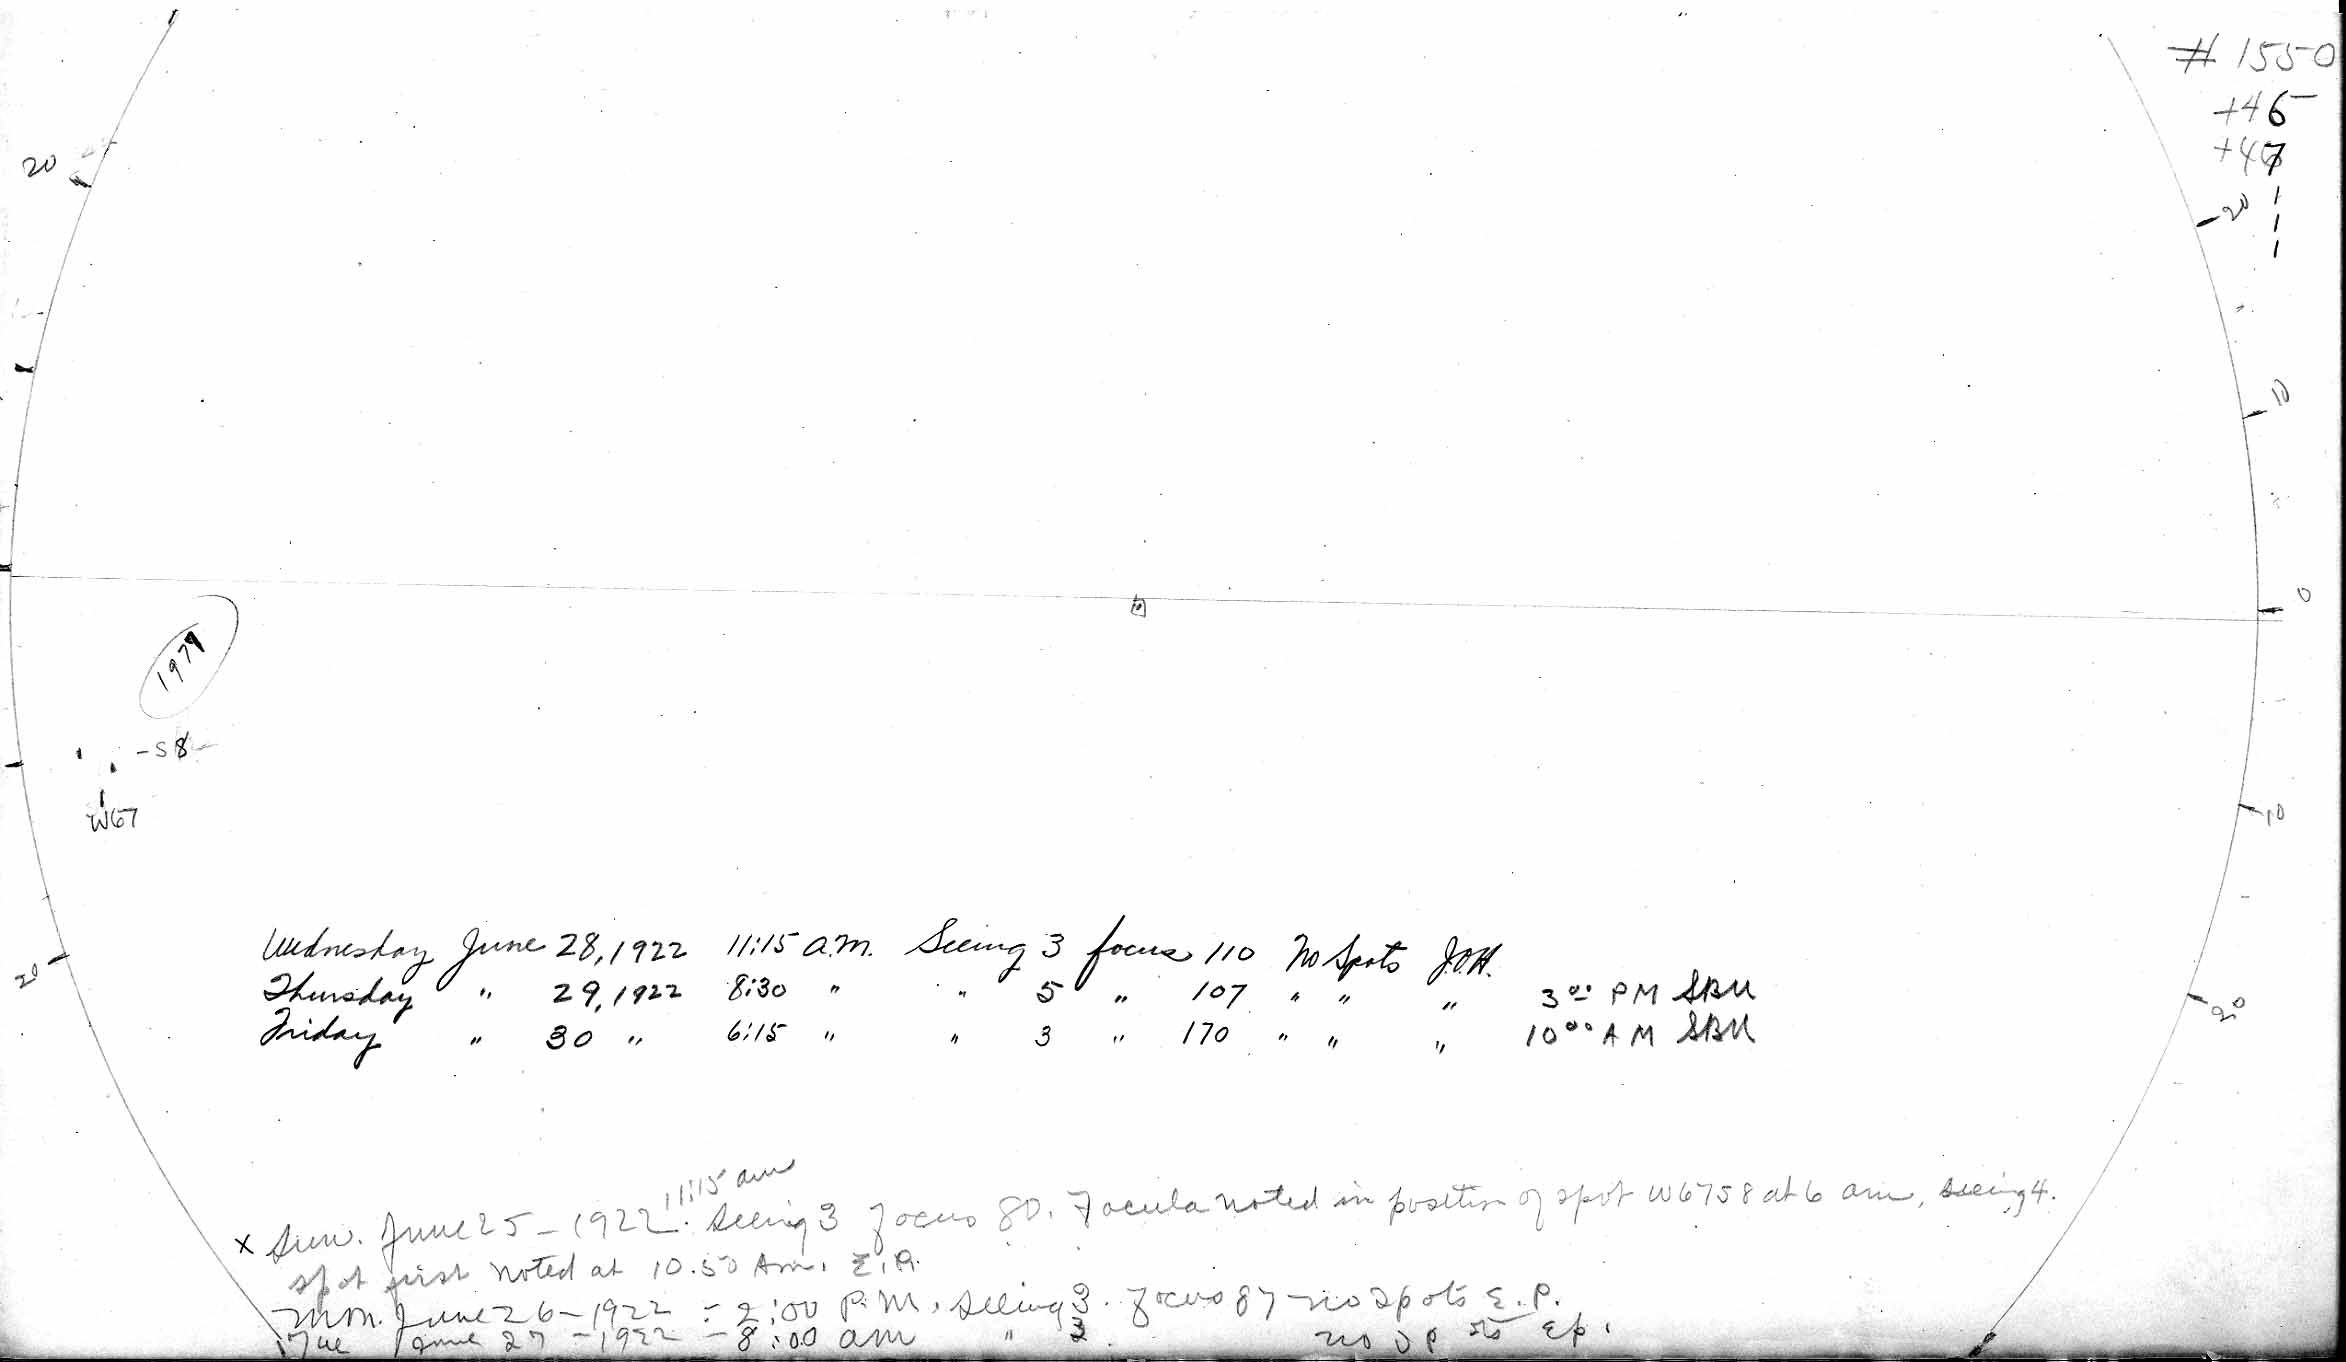 # 1550
+46
+47
20
20
10
0
1979
-S 8-
W67
10
20
20
Wednesday June 28, 1922 11:15 a.m. Seeing 3 focus 110 No Spots J.O.H.
Thursday " 29, 1922 8:30 " " 5 " 107 " " " 3 00 PM SBN
Friday " 30 " 6:15 " " 3 " 170 " " " 10 00 AM SBN
11:15 am
x Sun. June 25 - 1922. Seeing 3 focus 80. Facula noted in position of spot W67 S8 at 6 am, seeing 4.
spot first noted at 10.50 Am. E.P.
Mon. June 26 - 1922 - 2:00 P.M. Seeing 3. focus 87 no spots E.P.
Tue June 27 - 1922 - 8:00 am " 3 no spots E.P.